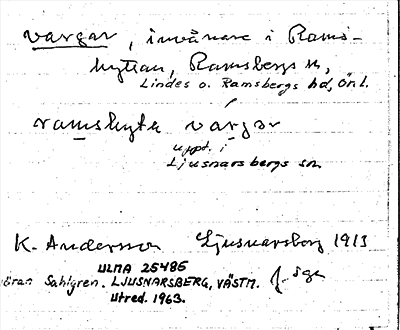 vargar, invånare i Rams-
hyttan, Ramsbergs sn,
Lindes o. Ramsbergs hd, Ön.l.
ramshyte vargar
uppt. i
Ljusnarsbergs sn.
K. Andersson Ljusnarsberg 1913
ULMA 25485
öran Sahlgren. LJUSNARSBERG, VÄSTM.
Utred. 1963.